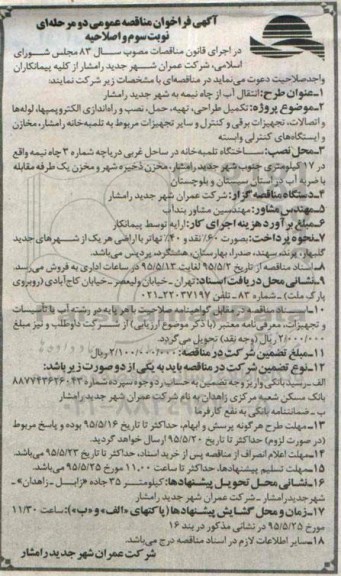 آگهی فراخوان مناقصه عمومی دو مرحله‌ای
نوبت سوم و اصلاحیه
در اجرای قانون مناقصات مصوب سال ۸۳ مجلس شورای
اسلامی، شرکت عمران شهر جدید رامشار از کلیه پیمانکاران
واجدصلاحیت دعوت می‌نماید در مناقصه‌ای با مشخصات زیر شرکت نمایند:
۱-عنوان طرح: انتقال آب از چاه نیمه به شهر جدید رامشار
۲-موضوع پروژه: تکمیل طراحی، تهیه، حمل، نصب و راه‌اندازی الکتروپمپها، لوله‌ها
و اتصالات، تجهیزات برقی و کنترل و سایر تجهیزات مربوط به تلمبه‌خانه رامشار، مخازن
و ایستگاه‌های کنترلی وابسته
۳-محل نصب: ساختگاه تلمبه‌خانه در ساحل غربی دریاچه شماره ۳ چاه نیمه واقع
در ۱۷ کیلومتری جنوب شهر جدید رامشار، مخزن ذخیره شهر و مخزن یک طرفه مقابله
با ضربه آب در استان سیستان و بلوچستان
۴-دستگاه مناقصه گزار: شرکت عمران شهر جدید رامشار
۵-مهندس مشاور: مهندسین مشاور بندآب
۶-مبلغ برآورد هزینه اجرای کار: ارایه توسط پیمانکار
۷-نحوه پرداخت: بصورت ۶۰٪ نقد و ۴۰٪ تهاتر با اراضی هر یک از شهرهای جدید
گلبهار، پرند، سهند، صدرا، بهارستان، هشتگرد، پردیس می‌باشد.
۸-اسناد مناقصه از تاریخ ۹۵/۵/۲ لغایت ۹۵/۵/۱۳ در ساعات اداری به فروش می‌رسد.
۹-نشانی محل دریافت اسناد: تهران - خیابان ولیعصر - خیابان کاج‌آبادی (روبروی
پارک ملت) - شماره ۸۳ - تلفن ۲۲۰۳۷۱۹۷-۰۲۱
۱۰-اسناد مناقصه در مقابل گواهینامه صلاحیت با هر پایه در رشته آب یا تأسیسات
و تجهیزات، معرفی‌نامه معتبر (با ذکر موضوع ارزیابی) از شرکت داوطلب و نیز مبلغ
۲/۰۰۰/۰۰۰ ریال (وجه نقد) تحویل می‌گردد.
۱۱-مبلغ تضمین شرکت در مناقصه: ۲/۱۰۰/۰۰۰/۰۰۰ ریال
۱۲-نوع تضمین شرکت در مناقصه باید به یکی از دو صورت زیر باشد:
الف-رسید بانکی واریز وجه تضمین به حساب رد وجوه سپرده شماره ۸۸۷۷۴۳۶۲۶۰۴۳
بانک مسکن شعبه مرکزی زاهدان به نام شرکت عمران شهر جدید رامشار
ب-ضمانتنامه بانکی به نفع کارفرما
۱۳-مهلت طرح هرگونه پرسش و ابهام، حداکثر تا تاریخ ۹۵/۵/۱۶ بوده و پاسخ مربوط
(در صورت لزوم) حداکثر تا تاریخ ۹۵/۵/۲۰ ارسال خواهد گردید.
۱۴-مهلت اعلام انصراف از مناقصه پس از خرید اسناد، حداکثر تا تاریخ ۹۵/۵/۲۳ می‌باشد.
۱۵-مهلت تسلیم پیشنهادها، حداکثر تا ساعت ۱۱:۰۰ مورخ ۹۵/۵/۲۵ می‌باشد.
۱۶-نشانی محل تحویل پیشنهادها: کیلومتر ۳۵ جاده «زابل-زاهدان»-
شهرجدیدرامشار-شرکت عمران شهر جدید رامشار
۱۷-زمان و محل گشایش پیشنهادها (پاکتهای «الف» و «ب»): ساعت ۱۱/۳۰
مورخ ۹۵/۵/۲۵ در نشانی مذکور در بند ۱۶
۱۸-سایر اطلاعات لازم در اسناد مناقصه درج می‌باشد.
شرکت عمران شهر جدید رامشار